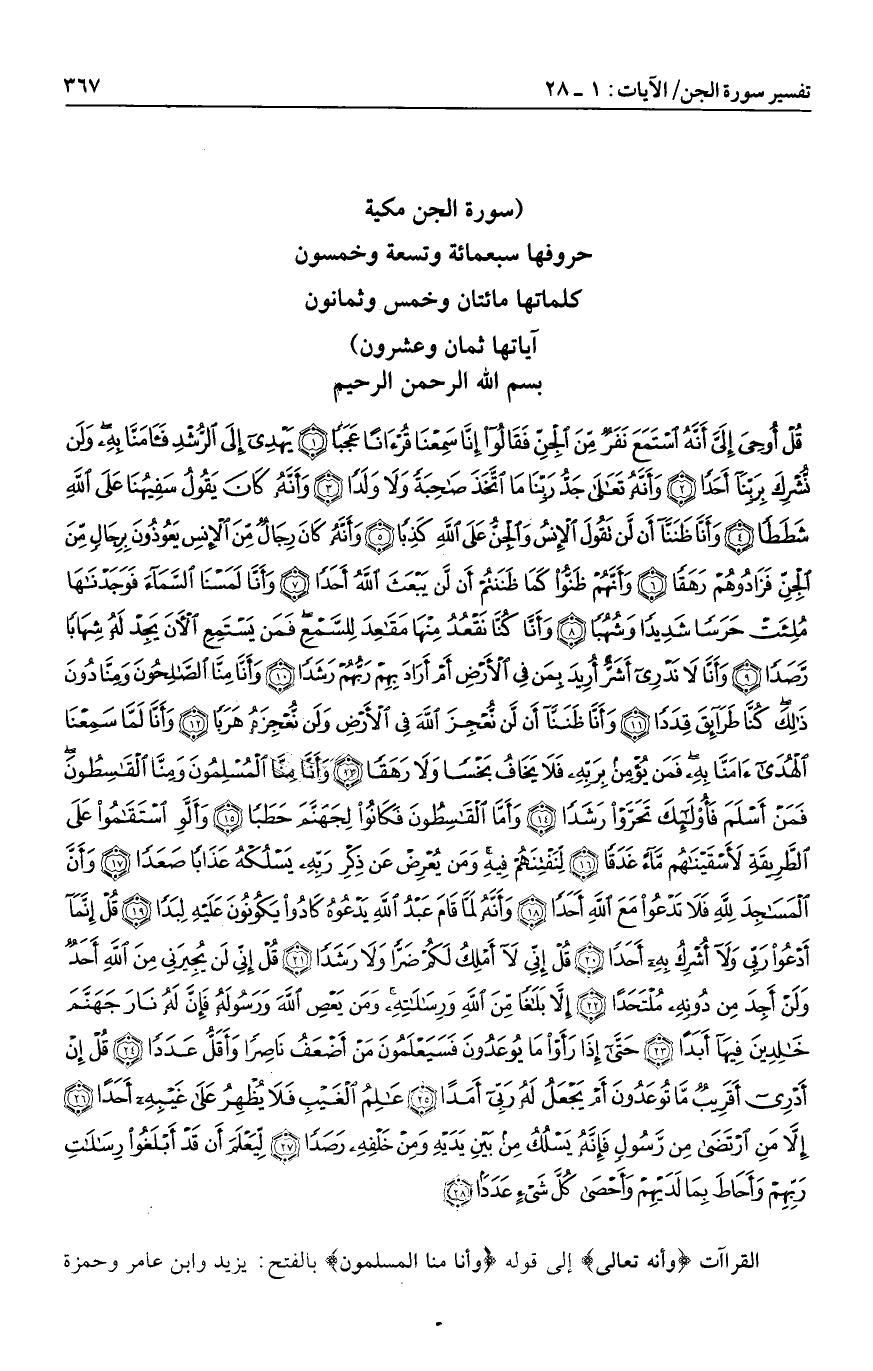 تفسير سورة الجن/ الآيات: ١ - ٢٨ ٣٦٧
(سورة الجن مكية
حروفها سبعمائة وتسعة وخمسون
كلماتها مائتان وخمس وثمانون
آياتها ثمان وعشرون)
بسم الله الرحمن الرحيم
قُلْ أُوحِىَ إِلَىَّ أَنَّهُ ٱسْتَمَعَ نَفَرٌ مِّنَ ٱلْجِنِّ فَقَالُوٓا۟ إِنَّا سَمِعْنَا قُرْءَانًا عَجَبًا ﴿١﴾ يَهْدِىٓ إِلَى ٱلرُّشْدِ فَـَٔامَنَّا بِهِۦ ۖ وَلَن
نُّشْرِكَ بِرَبِّنَآ أَحَدًا ﴿٢﴾ وَأَنَّهُۥ تَعَـٰلَىٰ جَدُّ رَبِّنَا مَا ٱتَّخَذَ صَـٰحِبَةً وَلَا وَلَدًا ﴿٣﴾ وَأَنَّهُۥ كَانَ يَقُولُ سَفِيهُنَا عَلَى ٱللَّهِ
شَطَطًا ﴿٤﴾ وَأَنَّا ظَنَنَّآ أَن لَّن نَقُولَ ٱلْإِنسُ وَٱلْجِنُّ عَلَى ٱللَّهِ كَذِبًا ﴿٥﴾ وَأَنَّهُۥ كَانَ رِجَالٌ مِّنَ ٱلْإِنسِ يَعُوذُونَ بِرِجَالٍ مِّنَ
ٱلْجِنِّ فَزَادُوهُمْ رَهَقًا ﴿٦﴾ وَأَنَّهُمْ ظَنُّوا۟ كَمَا ظَنَنتُمْ أَن لَّن يَبْعَثَ ٱللَّهُ أَحَدًا ﴿٧﴾ وَأَنَّا لَمَسْنَا ٱلسَّمَآءَ فَوَجَدْنَـٰهَا
مُلِئَتْ حَرَسًا شَدِيدًا وَشُهُبًا ﴿٨﴾ وَأَنَّا كُنَّا نَقْعُدُ مِنْهَا مَقَـٰعِدَ لِلسَّمْعِ ۖ فَمَن يَسْتَمِعِ ٱلْـَٔانَ يَجِدْ لَهُۥ شِهَابًا
رَّصَدًا ﴿٩﴾ وَأَنَّا لَا نَدْرِىٓ أَشَرٌّ أُرِيدَ بِمَن فِى ٱلْأَرْضِ أَمْ أَرَادَ بِهِمْ رَبُّهُمْ رَشَدًا ﴿١٠﴾ وَأَنَّا مِنَّا ٱلصَّـٰلِحُونَ وَمِنَّا دُونَ
ذَٰلِكَ ۖ كُنَّا طَرَآئِقَ قِدَدًا ﴿١١﴾ وَأَنَّا ظَنَنَّآ أَن لَّن نُّعْجِزَ ٱللَّهَ فِى ٱلْأَرْضِ وَلَن نُّعْجِزَهُۥ هَرَبًا ﴿١٢﴾ وَأَنَّا لَمَّا سَمِعْنَا
ٱلْهُدَىٰٓ ءَامَنَّا بِهِۦ ۖ فَمَن يُؤْمِنۢ بِرَبِّهِۦ فَلَا يَخَافُ بَخْسًا وَلَا رَهَقًا ﴿١٣﴾ وَأَنَّا مِنَّا ٱلْمُسْلِمُونَ وَمِنَّا ٱلْقَـٰسِطُونَ ۖ
فَمَنْ أَسْلَمَ فَأُو۟لَـٰٓئِكَ تَحَرَّوْا۟ رَشَدًا ﴿١٤﴾ وَأَمَّا ٱلْقَـٰسِطُونَ فَكَانُوا۟ لِجَهَنَّمَ حَطَبًا ﴿١٥﴾ وَأَلَّوِ ٱسْتَقَـٰمُوا۟ عَلَى
ٱلطَّرِيقَةِ لَأَسْقَيْنَـٰهُم مَّآءً غَدَقًا ﴿١٦﴾ لِّنَفْتِنَهُمْ فِيهِ ۚ وَمَن يُعْرِضْ عَن ذِكْرِ رَبِّهِۦ يَسْلُكْهُ عَذَابًا صَعَدًا ﴿١٧﴾ وَأَنَّ
ٱلْمَسَـٰجِدَ لِلَّهِ فَلَا تَدْعُوا۟ مَعَ ٱللَّهِ أَحَدًا ﴿١٨﴾ وَأَنَّهُۥ لَمَّا قَامَ عَبْدُ ٱللَّهِ يَدْعُوهُ كَادُوا۟ يَكُونُونَ عَلَيْهِ لِبَدًا ﴿١٩﴾ قُلْ إِنَّمَآ
أَدْعُوا۟ رَبِّى وَلَآ أُشْرِكُ بِهِۦٓ أَحَدًا ﴿٢٠﴾ قُلْ إِنِّى لَآ أَمْلِكُ لَكُمْ ضَرًّا وَلَا رَشَدًا ﴿٢١﴾ قُلْ إِنِّى لَن يُجِيرَنِى مِنَ ٱللَّهِ أَحَدٌ
وَلَنْ أَجِدَ مِن دُونِهِۦ مُلْتَحَدًا ﴿٢٢﴾ إِلَّا بَلَـٰغًا مِّنَ ٱللَّهِ وَرِسَـٰلَـٰتِهِۦ ۚ وَمَن يَعْصِ ٱللَّهَ وَرَسُولَهُۥ فَإِنَّ لَهُۥ نَارَ جَهَنَّمَ
خَـٰلِدِينَ فِيهَآ أَبَدًا ﴿٢٣﴾ حَتَّىٰٓ إِذَا رَأَوْا۟ مَا يُوعَدُونَ فَسَيَعْلَمُونَ مَنْ أَضْعَفُ نَاصِرًا وَأَقَلُّ عَدَدًا ﴿٢٤﴾ قُلْ إِنْ
أَدْرِىٓ أَقَرِيبٌ مَّا تُوعَدُونَ أَمْ يَجْعَلُ لَهُۥ رَبِّىٓ أَمَدًا ﴿٢٥﴾ عَـٰلِمُ ٱلْغَيْبِ فَلَا يُظْهِرُ عَلَىٰ غَيْبِهِۦٓ أَحَدًا ﴿٢٦﴾
إِلَّا مَنِ ٱرْتَضَىٰ مِن رَّسُولٍ فَإِنَّهُۥ يَسْلُكُ مِنۢ بَيْنِ يَدَيْهِ وَمِنْ خَلْفِهِۦ رَصَدًا ﴿٢٧﴾ لِّيَعْلَمَ أَن قَدْ أَبْلَغُوا۟ رِسَـٰلَـٰتِ
رَبِّهِمْ وَأَحَاطَ بِمَا لَدَيْهِمْ وَأَحْصَىٰ كُلَّ شَىْءٍ عَدَدًۢا ﴿٢٨﴾
القراآت ﴿وأنه تعالى﴾ إلى قوله ﴿وأنا منا المسلمون﴾ بالفتح: يزيد وابن عامر وحمزة